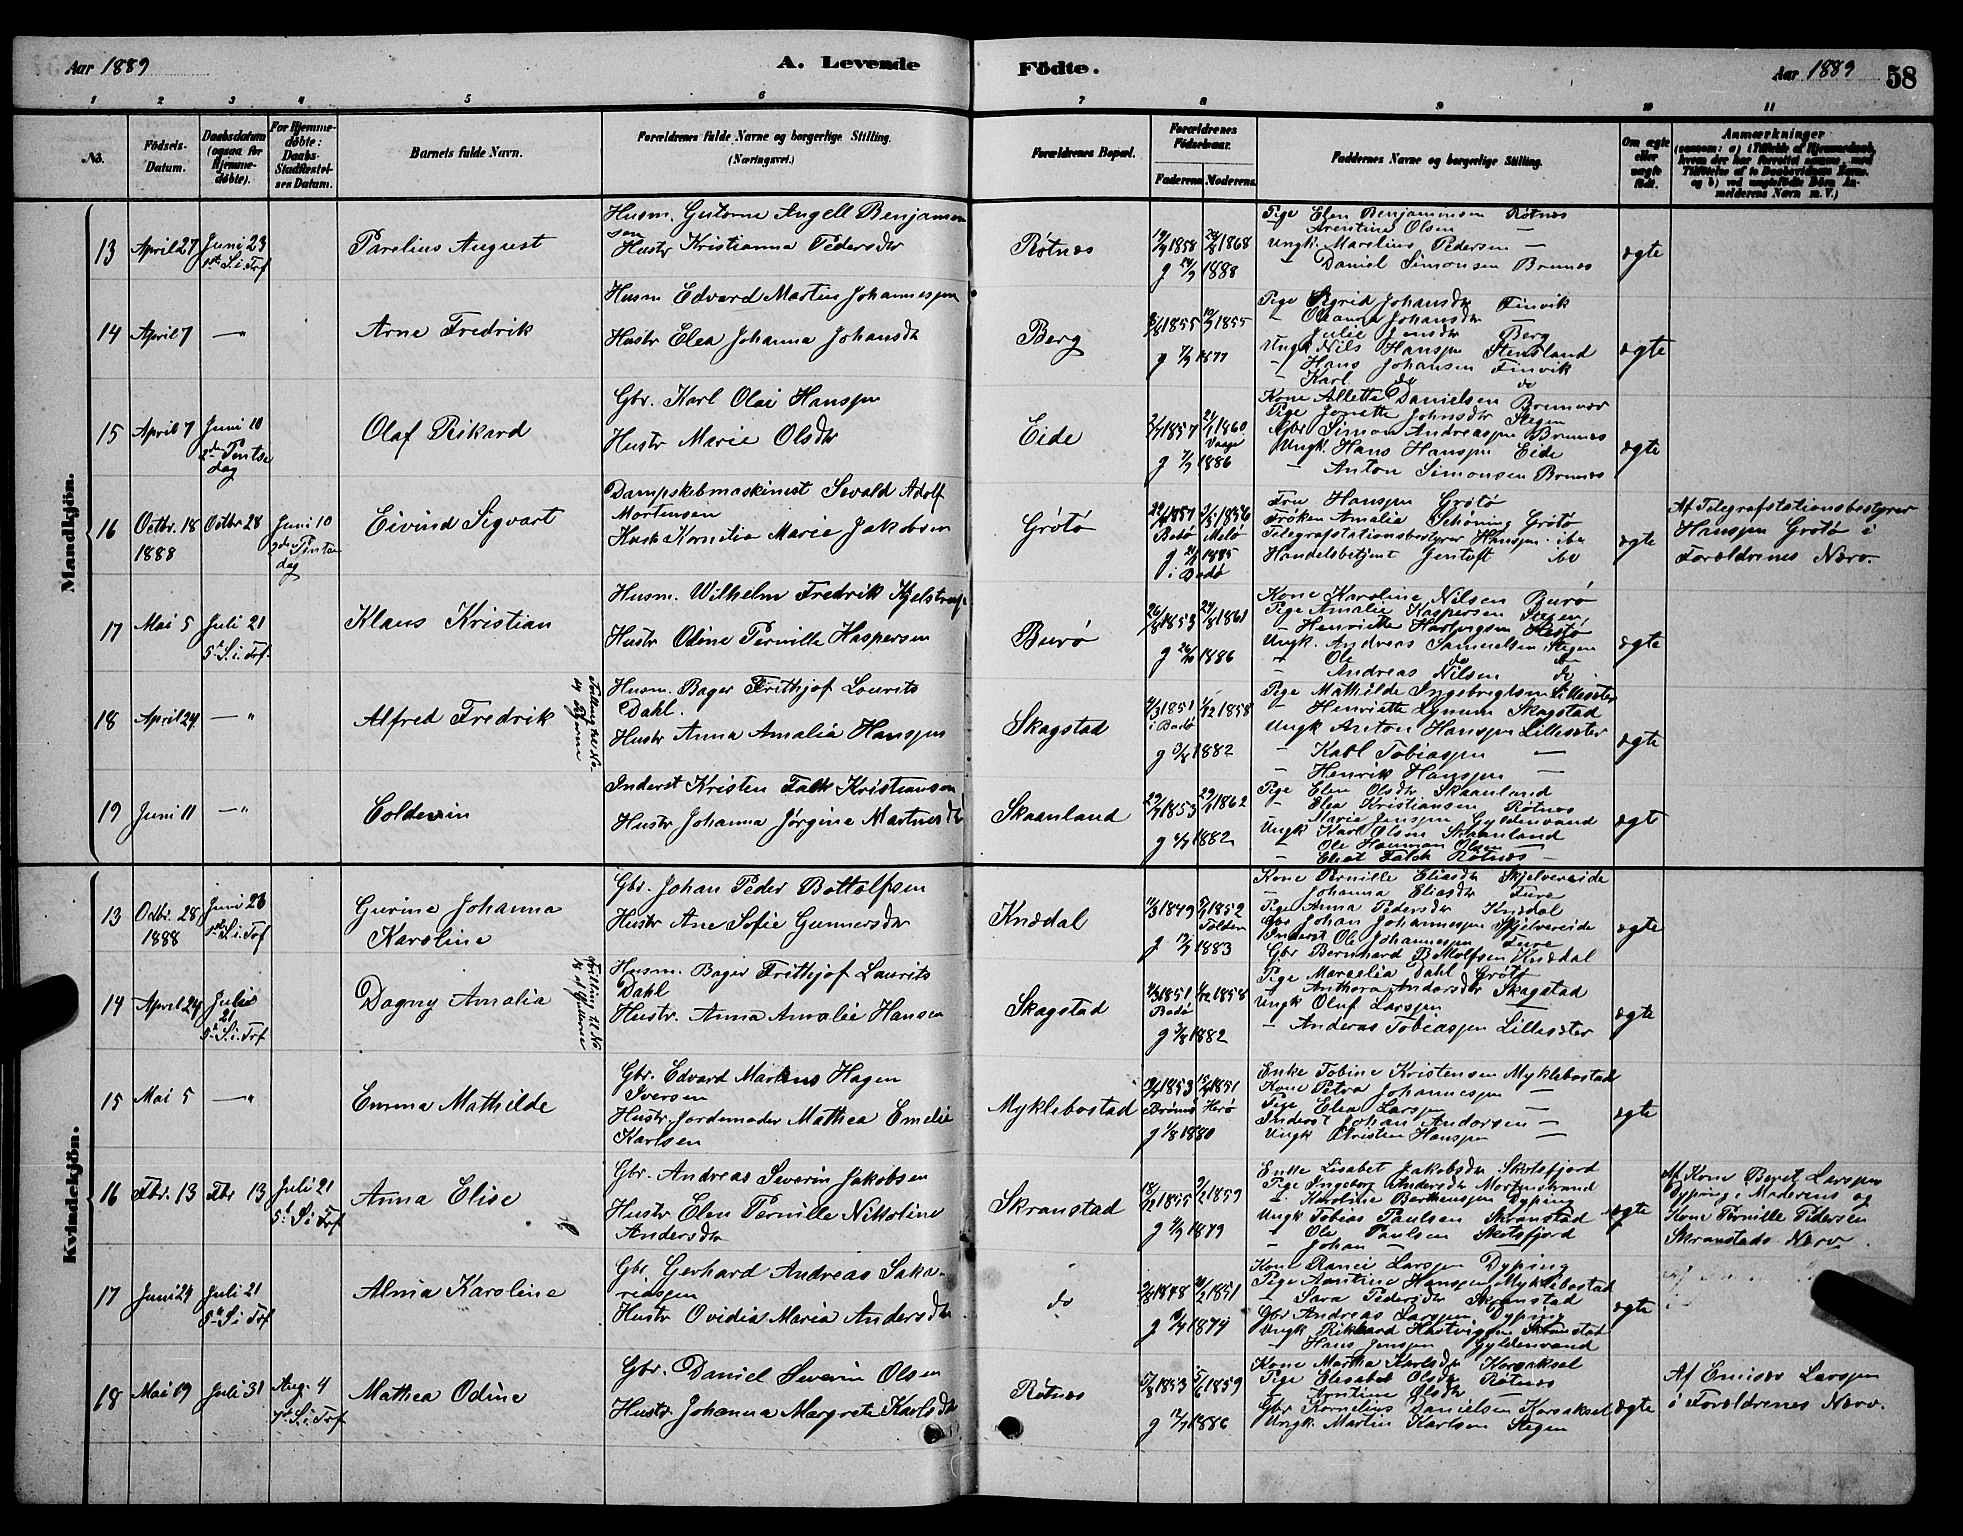 Aar 1889 A. Levende Födte. Aar 1889 58
1 2 3 4 5 6 7 8 9 10 11
No. Födsels-Datum. Daabsdatum (ogsaa for Hjemmedöbte). For Hjemmedöbte: Daabs-Stadfæstelsens Datum. Barnets fulde Navn. Forældrenes fulde Navne og borgerlige Stilling. (Næringsvei.) Forældrenes Bopæl. Forældrenes Födselsaar. Faderens. Moderens. Faddernes Navne og borgerlige Stilling. Om ægte eller uægte födt. Anmærkninger
Mandkjön.
13 April 27 Juni 23 Parelius August
Husm. Gutorm Angell Benjaminsen
Hustr Kristianna Pedersdtr
Røtnes 1858 1868
g 1888
Pige Elen Benjaminsen Røtnes
Arentine Olsen —
Ungk. Marelius Pedersen —
— Daniel Simonsen Brunes
ægte
14 April 7 — Arne Fredrik
Husm. Edvard Martin Johannesen
Hustr Elea Johanna Johansdtr
Berg 1855 1855
g 1877
Pige Sigrid Johansdtr Finvik
Johansdtr —
Julie Jensdtr Berg
Ungk Nils Hanssen Stensland
— Hans Johansen Finvik
— Karl do do
ægte
15 April 7 Juni 10 2den Pintsedag Olaf Rikard
Gbr. Karl Olai Hanssen
Hustr Marie Olsdtr
Eide 1857 1860
g 1886
Kone Allette Danielsen Brunvær
Pige Jonette Johnsdtr Stegen
Gbr Simon Andreassen Brunes
Ungk. Hans Hanssen Eide
— Anton Simonsen Brunes
ægte
16 Octbr. 18 1888 Octbr 28 Juni 10 2den Pintsedag Eivind Sigvart
Dampskibmaskinist Sevald Adolf
Mortensen
Hustr Kornelia Marie Jakobsen
Grøtø 1857 1856
Bodø Melø
g 1885
i Bodø
Fru Hanssen Grøtø
Frøken Amalia Schøning Grøtø
Telegrafstationsbestyrer Hanssen ibm
Handelsbetjent Gentoft ibm
ægte
Af Telegrafstationsbestyrer
Hanssen Grøtø i
Forældrenes Nærv.
17 Mai 5 Juli 21 5te S. i. Trf. Klaus Kristian
Husm. Wilhelm Fredrik Kjelstrup
Hustr Odine Pernille Kaspersen
Burø 1853 1861
g 1886
Kone Karoline Nilsen Burø
Pige Amalie Kaspersen Stegen
— Henriette Hartvigsen
Ungk. Andreas Samuelsen Stegen
— Ole do do
— Andreas Nilsen do
ægte
18 April 24 — Alfred Fredrik Tvilling til No 14 Pigerne
Husm. Bager Frithjof Laurits
Dahl.
Hustr Anna Amalia Hanssen
Skagstad 1851 1858
i Bodø
g 1882
Pige Mathilde Ingebrigtsen Lillesæter
— Henriette Lynum Skagstad
Ungk Anton Hanssen Lillesæter
— Karl Tobiassen —
— Henrik Hanssen —
ægte
19 Juni 11 — Coldevin
Inderst Kristen Falk Kristiansen
Hustr Johanna Jørgine Martinesdtr
Skaanland 1853 1862
g 1882
Pige Elen Olsdtr Skaanland
— Elea Kristiansen Røtnes
— Marie Jenssen Gyldenvand
Ungk Karl Olsen Skaanland
— Ole Olsen —
— Falck Røtnes —
ægt
Kvindekjön.
13 Octbr. 28 1888 Juni 23 Gurine Johanna
Karoline
Gbr. Johan Peder Bottolfsen
Hustr Ane Sofie Gunnersdtr
Knædal 1849 1852
Folden
g 1883
Kone Pernille Eliasdtr Skjelvereide
— Johanna Eliasdtr Fure
Pige Anna Pedersdtr Knædal
Gbr Johan Johannessen Skjelvereide
Inderst Ole Johannessen Fure
Gbr Bernhard Bottolfsen Knædal
ægte
14 April 24 Juli 21 5te S. i. Trf Dagny Amalia Tvilling til No 18 af Guttene
Husm. Bager Frithjof Laurits
Dahl
Hustr. Anna Amalie Hansen
Skagstad 1851 1858
Bodø
g 1882
Pige Marselia Dahl Grøtø
— Anthora Andersdtr Skagstad
Ungk Oluf Larssen —
— Anderas Tobiassen Lillesæter
ægte
15 Mai 5 — Emma Mathilde
Gbr. Edvard Markus Hagen
Iversen
Hustr. Jordemoder Mathea Emelie
Karlsen
Myklebostad 1853 1851
Brønnø Herø
g 1880
Enke Tobine Kristensen Myklebostad
Kone Petra Johannessen —
Pige Elea Larssen —
Inderst Johan Andersen —
Ungk Christen Hanssen —
ægte
16 Fbr. 13 Fbr 13 Juli 21 5te S. i Trf Anna Elise
Gbr. Andreas Severin Jakobsen
Hustr Elen Pernille Nikoline
Andersdtr
Skranstad 1855 1859
g 1879
Enke Lisabet Jakobsdtr Skotsfjord
Pige Ingeborg Andersdtr Mortenstrand
— Karoline Dyping
Ungk Tobias Paulsen Skranstad
— Ole Paulsen Skotsfjord
— Johan — —
ægte
Af Kone Beret Larssen
Dyping i Moderens og
Kone Pernille Pedersen
Skranstads Nærv.
17 Juni 24 Juli 21 5te S. i Trf Alma Karoline
Gbr Gerhard Andreas Sakariassen
Hustr Ovidia Maria Andersdtr
do 1848 1851
g 1874
Kone Larssen Dyping
Pige Hanssen Myklebostad
— Sara Pedersdtr Skranstad
Gbr Andreas Larssen Dyping
Ungk Rikhard Hartvigsen Skranstad
— Hans Jenssen Gyldenvand
ægte
18 Mai 19 Juli 31 Aug. 4 7de S. i Trf Mathea Odine
Gbr. Daniel Severin Olsen
Hustr. Johanna Margrete Karlsdtr
Røtnes 1853 1859
g 1886
Kone Martha Karlsdtr Korsaksel
Pige Elisabet Olsdtr Røtnes
— Arntine Olsdtr —
Gbr Kornelius Danielsen Korsaksel
Ungk. Martin Karlsen Stegen
ægte
Af Emisær Larssen
i Forældrenes Nærv.